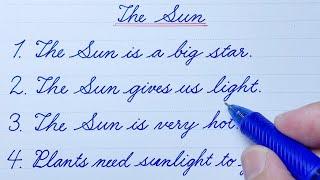 The Sun
1. The Sun is a big star.
2. The Sun gives us light.
3. The Sun is very hot.
4. Plants need sunlight to